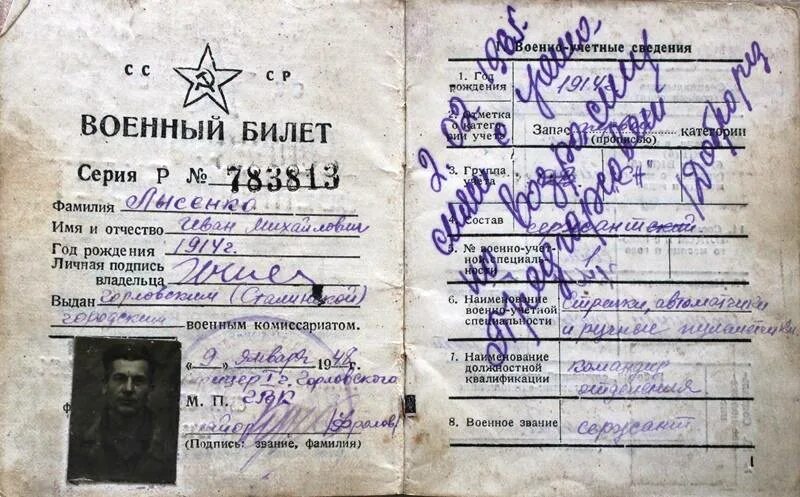 СС СР
ВОЕННЫЙ БИЛЕТ
Серия Р № 783813
Фамилия Лысенко
Имя и отчество Иван Михайлович
Год рождения 1914г.
Личная подпись
владельца
Выдан Горловским (Сталинской)
городским военным комиссариатом.
„9" января 1948г.
Горловского
М. П.
майор (Фролов)
(Подпись: звание, фамилия)
1. Военно-учетные сведения
1. Год
рождения 1914г
2. Отметка
о катего-
рии учета Запас категории
(прописью)
3. Группа
учета "СН"
4. Состав сержантский
5. № военно-учет-
ной специаль-
ности 1
6. Наименование
военно-учетной
специальности Стрелки, автоматчики
и ручные пулеметчики
7. Наименование
должностной
квалификации командир
отделения
8. Военное звание сержант
снят с учета
по возрасту
1